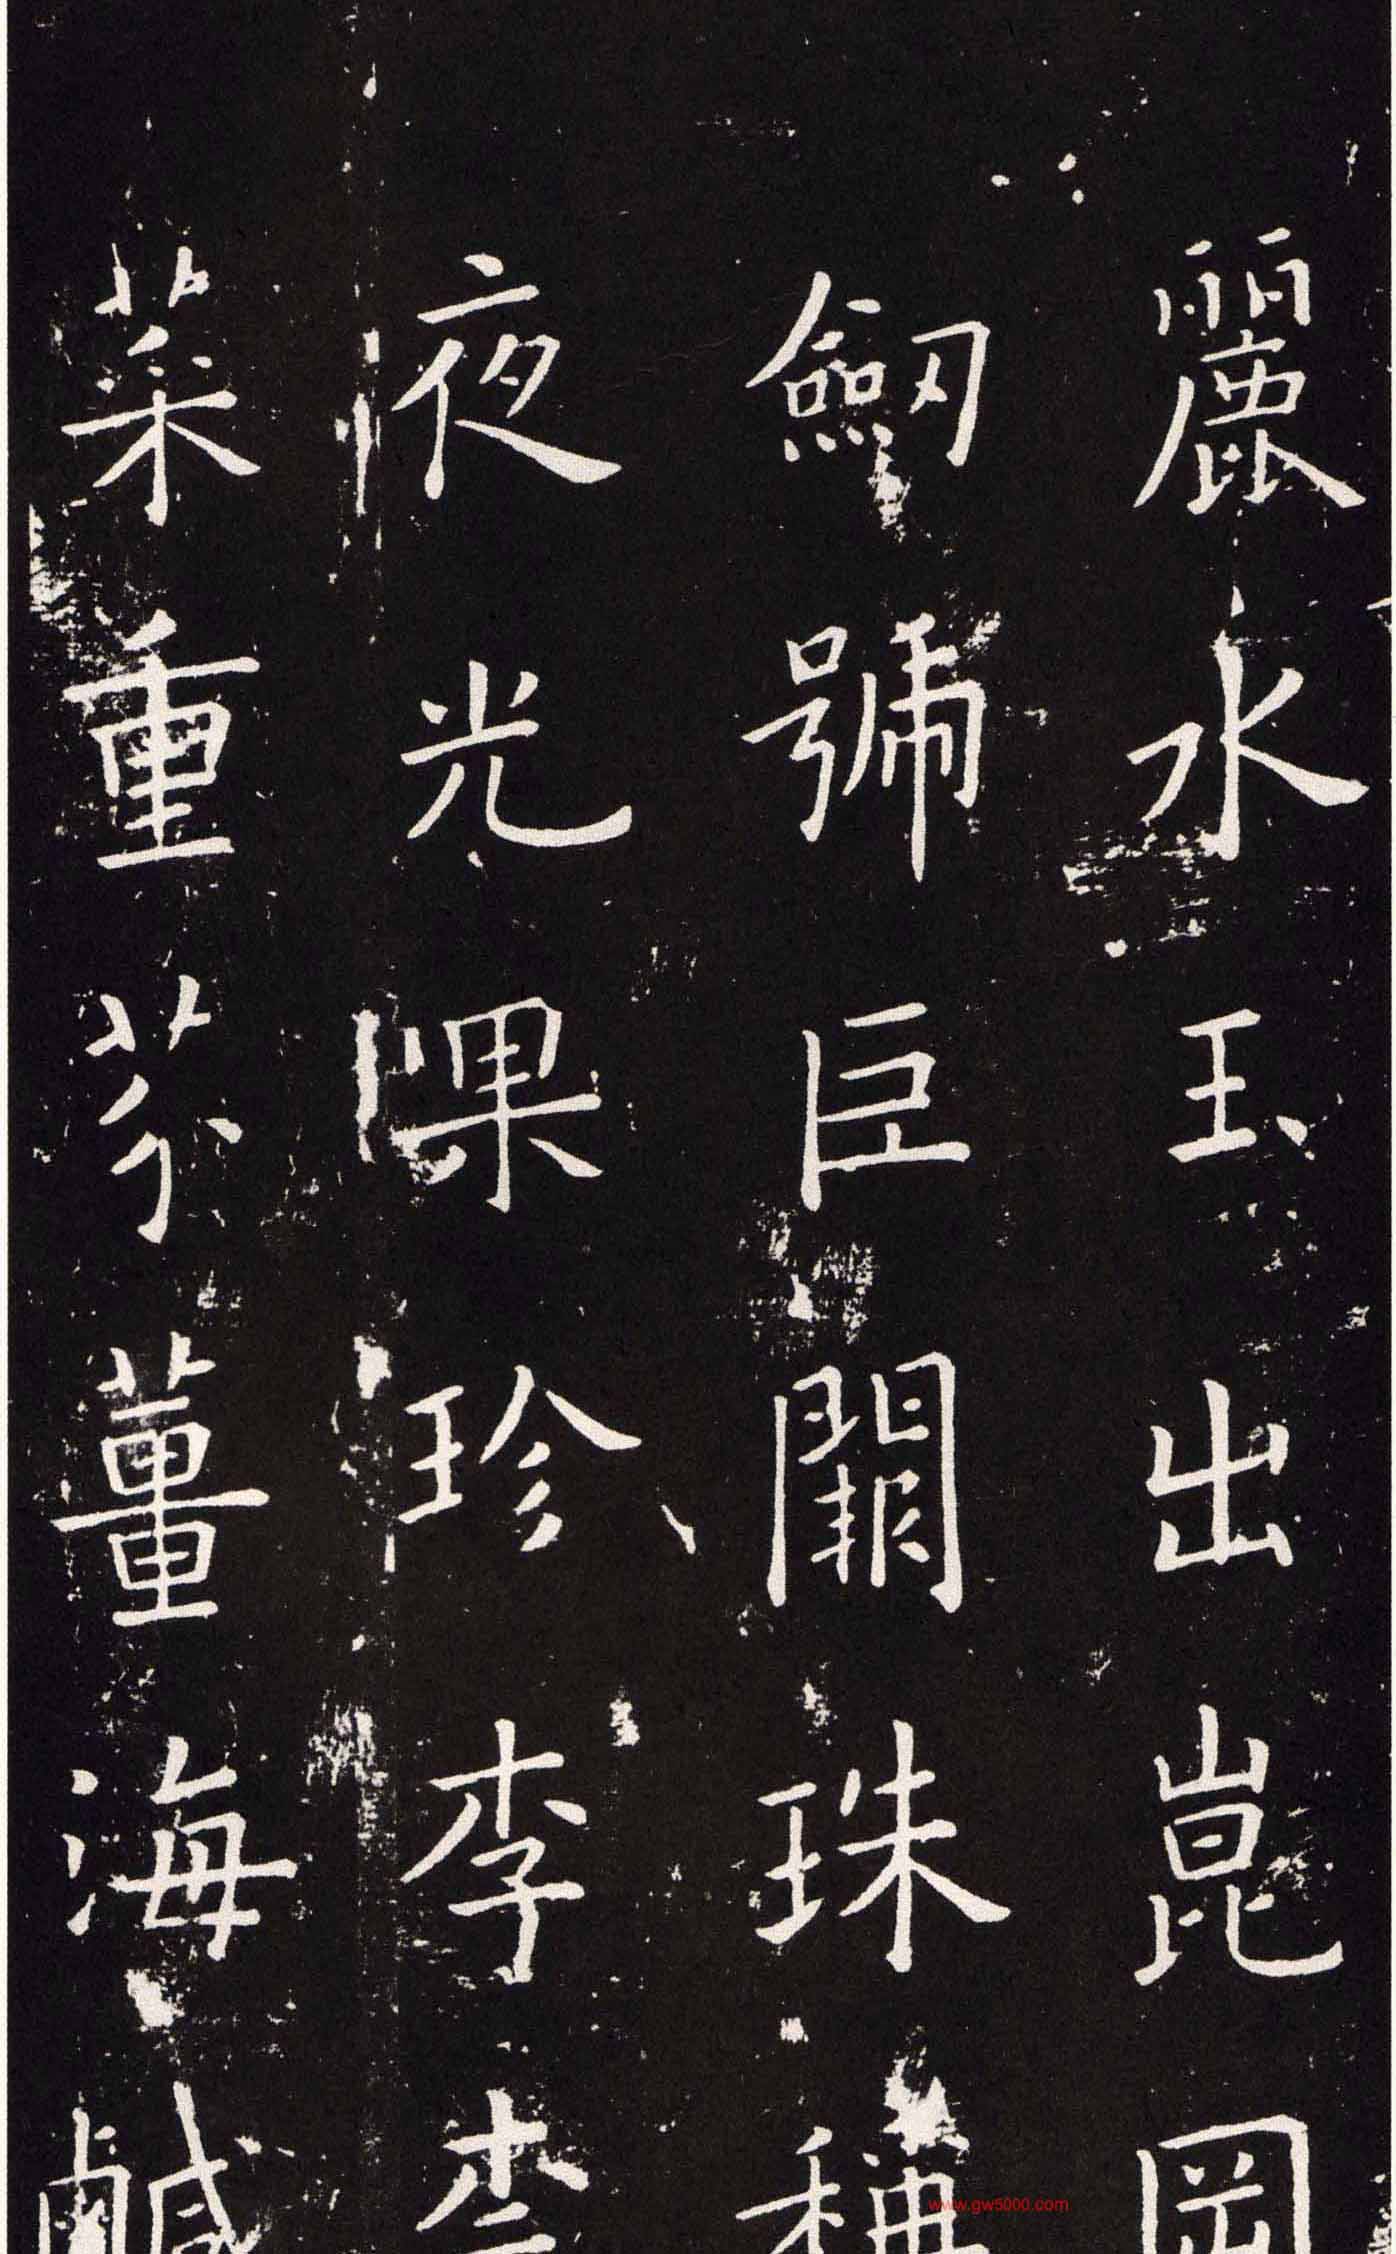 麗水玉出崑岡
劒號巨闕珠稱
夜光果珍李柰
菜重芥薑海鹹
www.gw5000.com